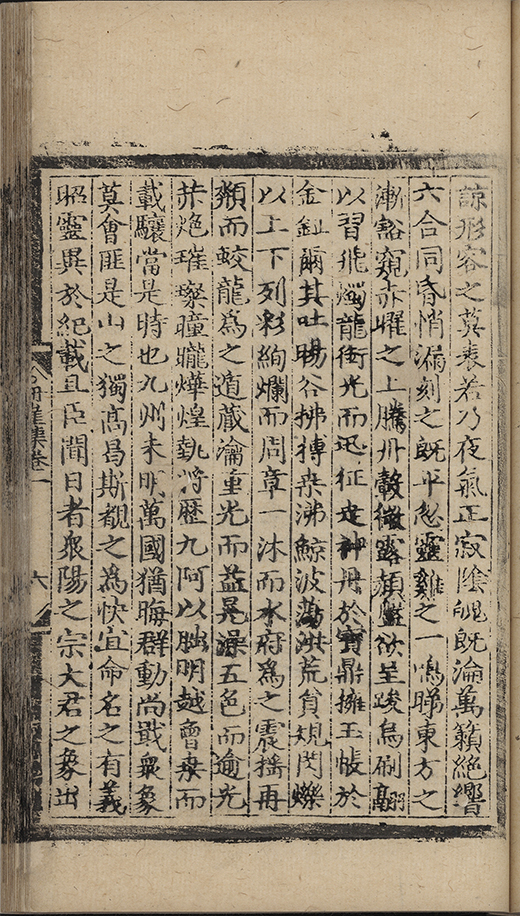 諒形容之莫裘若乃夜氣正寂陰魄既淪萬籟絶響
六合同昏悄漏刻之既平忽靈雞之一鳴睇東方之
漸豁窺赤曜之上騰丹轂微露頳盤欲呈踆烏刷翮
以習飛燭龍銜光而迅征走神丹於寶鼎擁玉帳於
金缸爾其吐暘谷拂搏桒沸鯨波蕩洪荒貟規閃爍
以上下列彩絢爛而周章一沐而水府爲之震搖再
頮而蛟龍爲之遁蔵瀹重光而益晃澡五色而逾光
赤熄璀璨曈曨燁煌埶將歴九阿以朏明越曾桒而
載驤當是時也九州未明萬國猶晦群動尚戢衆象
莫會匪是山之獨髙曷斯覩之爲快宜命名之有義
昭靈異於紀載且臣聞日者衆陽之宗大君之象出
集卷一
六